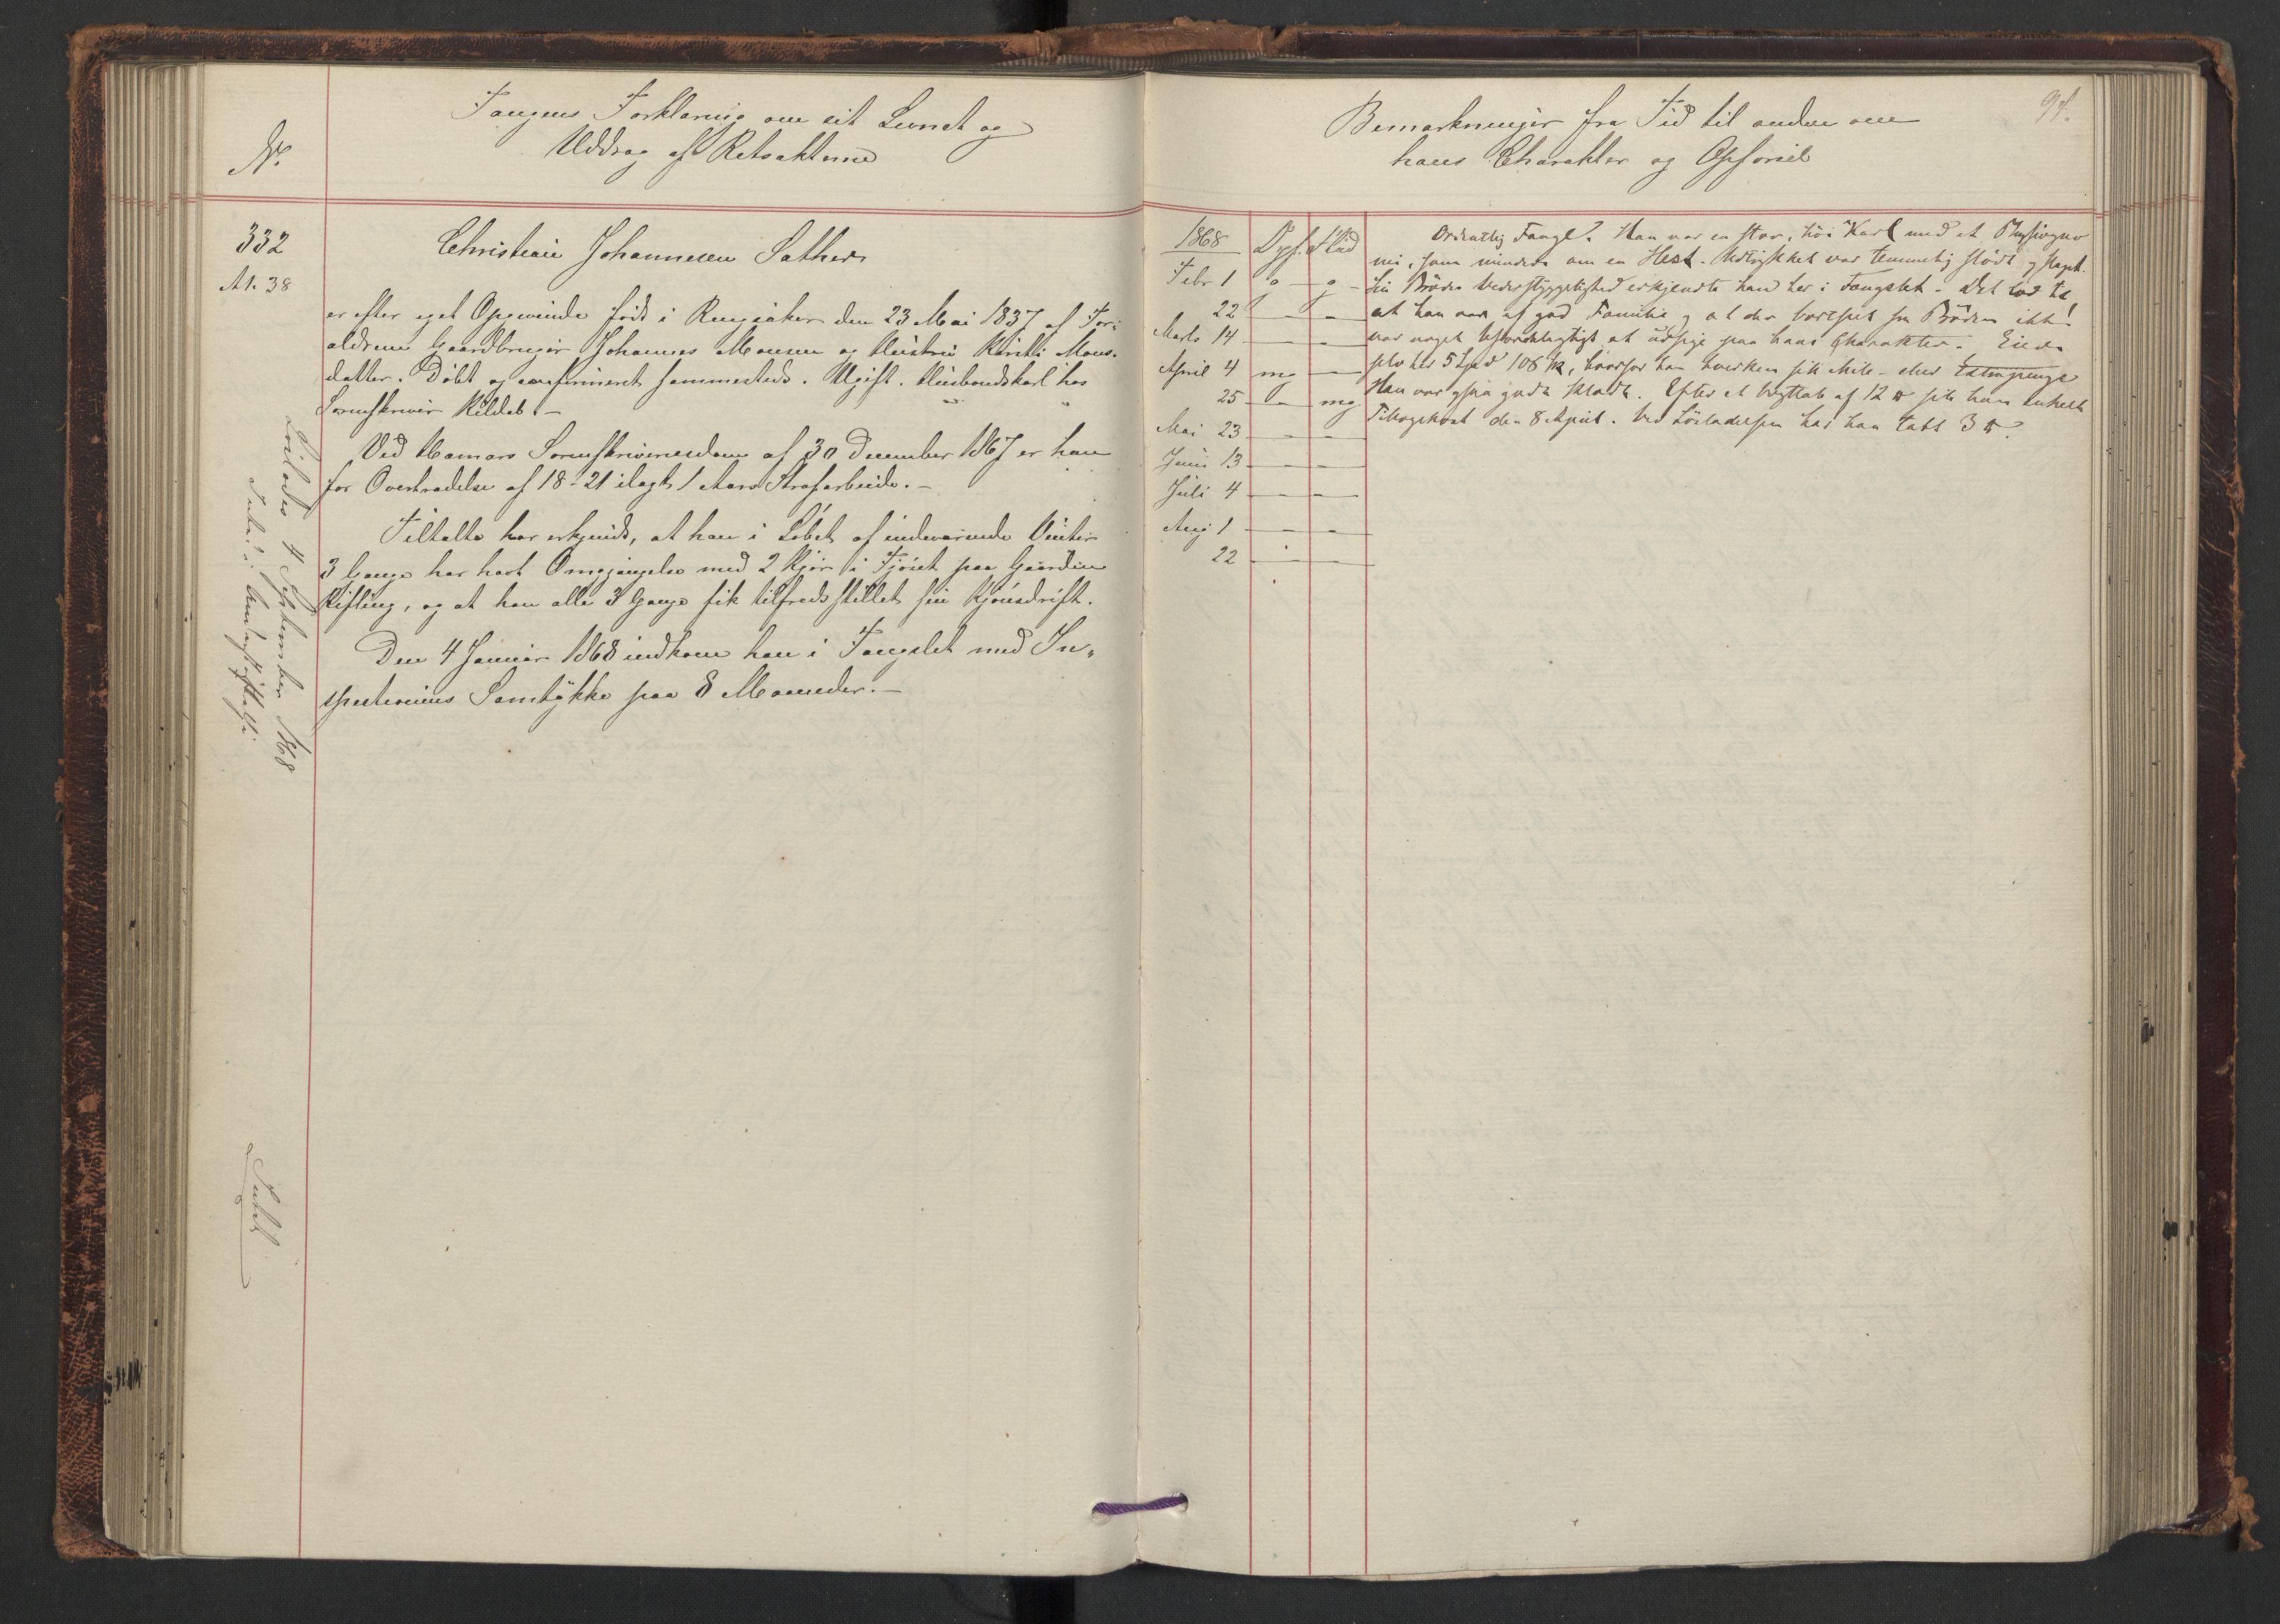 Fangens Forklaring om sit Levnet og
Uddrag af Retsakterne
No.
332
A 1. 38
Christian Johannesen Sæther
er efter eget Opgivende født i Ringsaker den 23 Mai 1837 af For-
ældrene Gaardbruger Johannes Monsen og Hustru Kirsti Mons-
datter. Døbt og confirmeret sammesteds. Ugift. Huusbondskarl hos
Sorenskriver Kildal. -
Ved Hamars Sorenskriveriesdom af 30 December 1867 er han
for Overtrædelse af 18-21 ilagt 1 Aars Strafarbeide. -
Tiltalte har erkjendt, at han i Løbet af indeværende Vinter
3 Gange har havt Omgjængelse med 2 Kjør i Fjøset paa Gaarden
Kisling, og at han alle 3 Gange fik tilfredsstillet sin Kjønsdrift.
Den 4 Januar 1868 indkom han i Fængslet med In-
spectionens Samtykke paa 8 Maaneder. -
Løslades 4 September 1868
Bemærkninger fra Tid til anden om
hans Charakter og Opførsel
94.
1868 Opf. Flid
Febr 1 g - g -
22 - -
Marts 14 - -
April 4 mg -
25 - mg
Mai 23 - -
Juni 13 - -
Juli 4 - -
Aug 1 - -
22 - -
Ordentlig Fange. Han var en stor, høi Karl med et Physiogno
mi, som mindede om en Hest. Udtrykket var temmelig sløvt og slapt.
Sin Brødes Vederstyggelighed erkjendte han her i Fængslet. Det lod til
at han var af god Familie og at der bortseet fra Brøden ikke
var noget ufordelagtigt at udsige paa hans Charakter. Eiede
selv
5 Spd 106 ſk, hvorfor han hverken fik Mile- eller Extrapenge
Han var ogsaa godt klædt. Efter et Vægttab af 12 ℔ fik han enkelt
Tillægskost den 8 April. Ved Løsladelsen har han tabt 3 ℔.